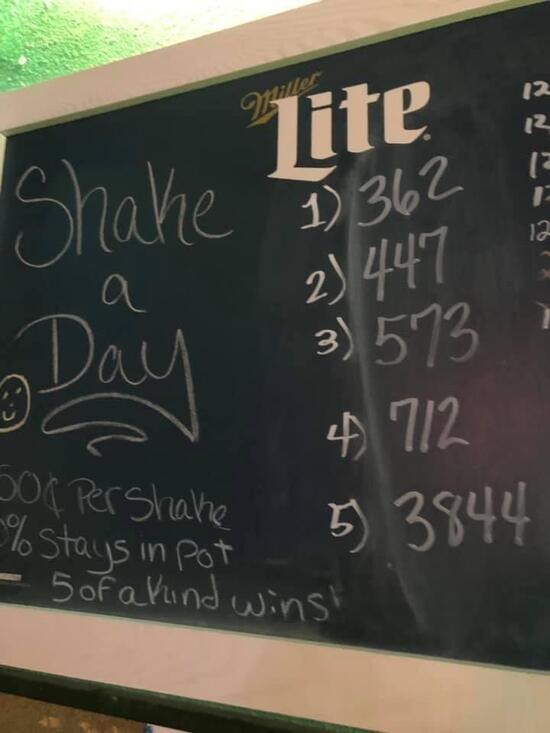 Miller
Lite
Shake
a
Day
1) 362
2) 447
3) 573
4) 712
5) 3844
50¢ Per Shake
% Stays in pot
5 of a kind wins!
12
12
12